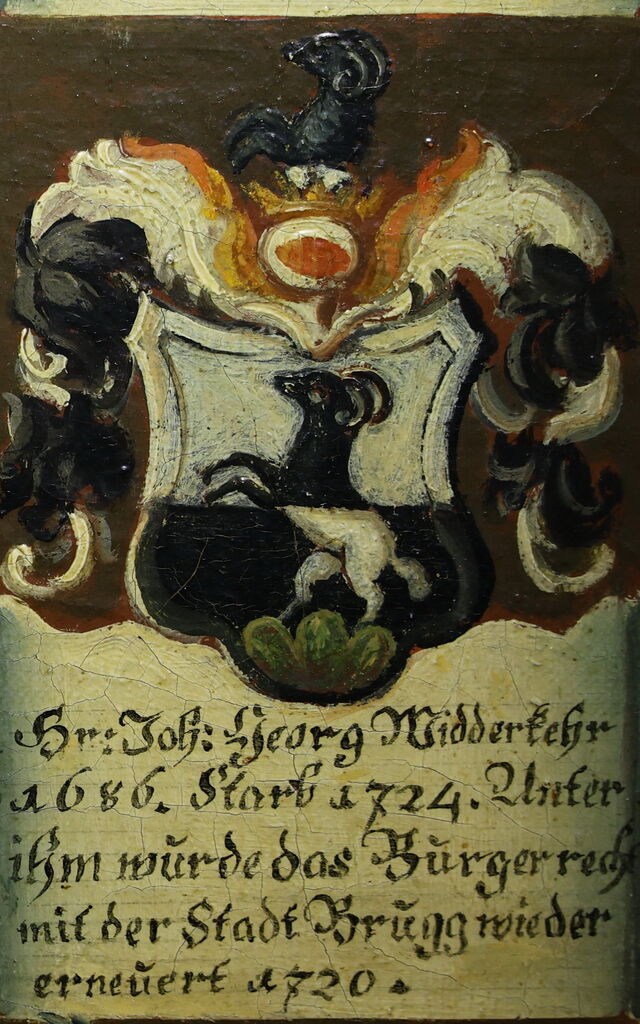 Hr: Joh: Georg Widderkehr
1686. Starb 1724. Unter
ihm wūrde das Būrgerrech
mit der Stadt Brūgg wieder
erneūert 1720.